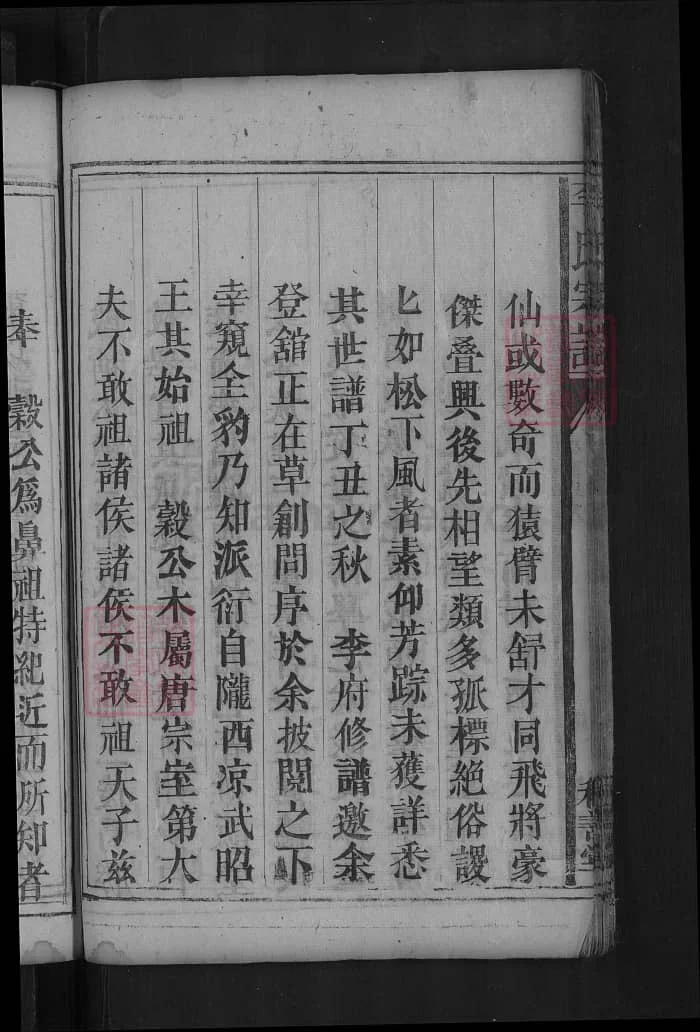 李氏宗譜
仙或數奇而猿臂未舒才同飛將豪
傑叠興後先相望類多孤標絕俗謖
匕如松下風者素仰芳踪未獲詳悉
其世譜丁丑之秋 李府修譜邀余
登舘正在草創問序於余披閱之下
幸窺全豹乃知派衍自隴西凉武昭
王其始祖 穀公木屬唐宗室第大
夫不敢祖諸侯諸侯不敢祖天子兹
奉 穀公爲鼻祖特紀近而所知者